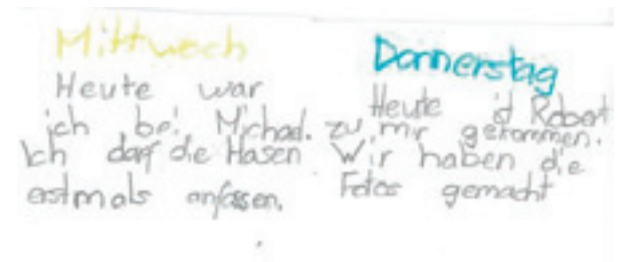 Mittwoch
Heute war
ich bei Michael.
Ich darf die Hasen
erstmals anfassen.
Donnerstag
Heute ist Robert
zu mir gekommen.
Wir haben die
Fotos gemacht